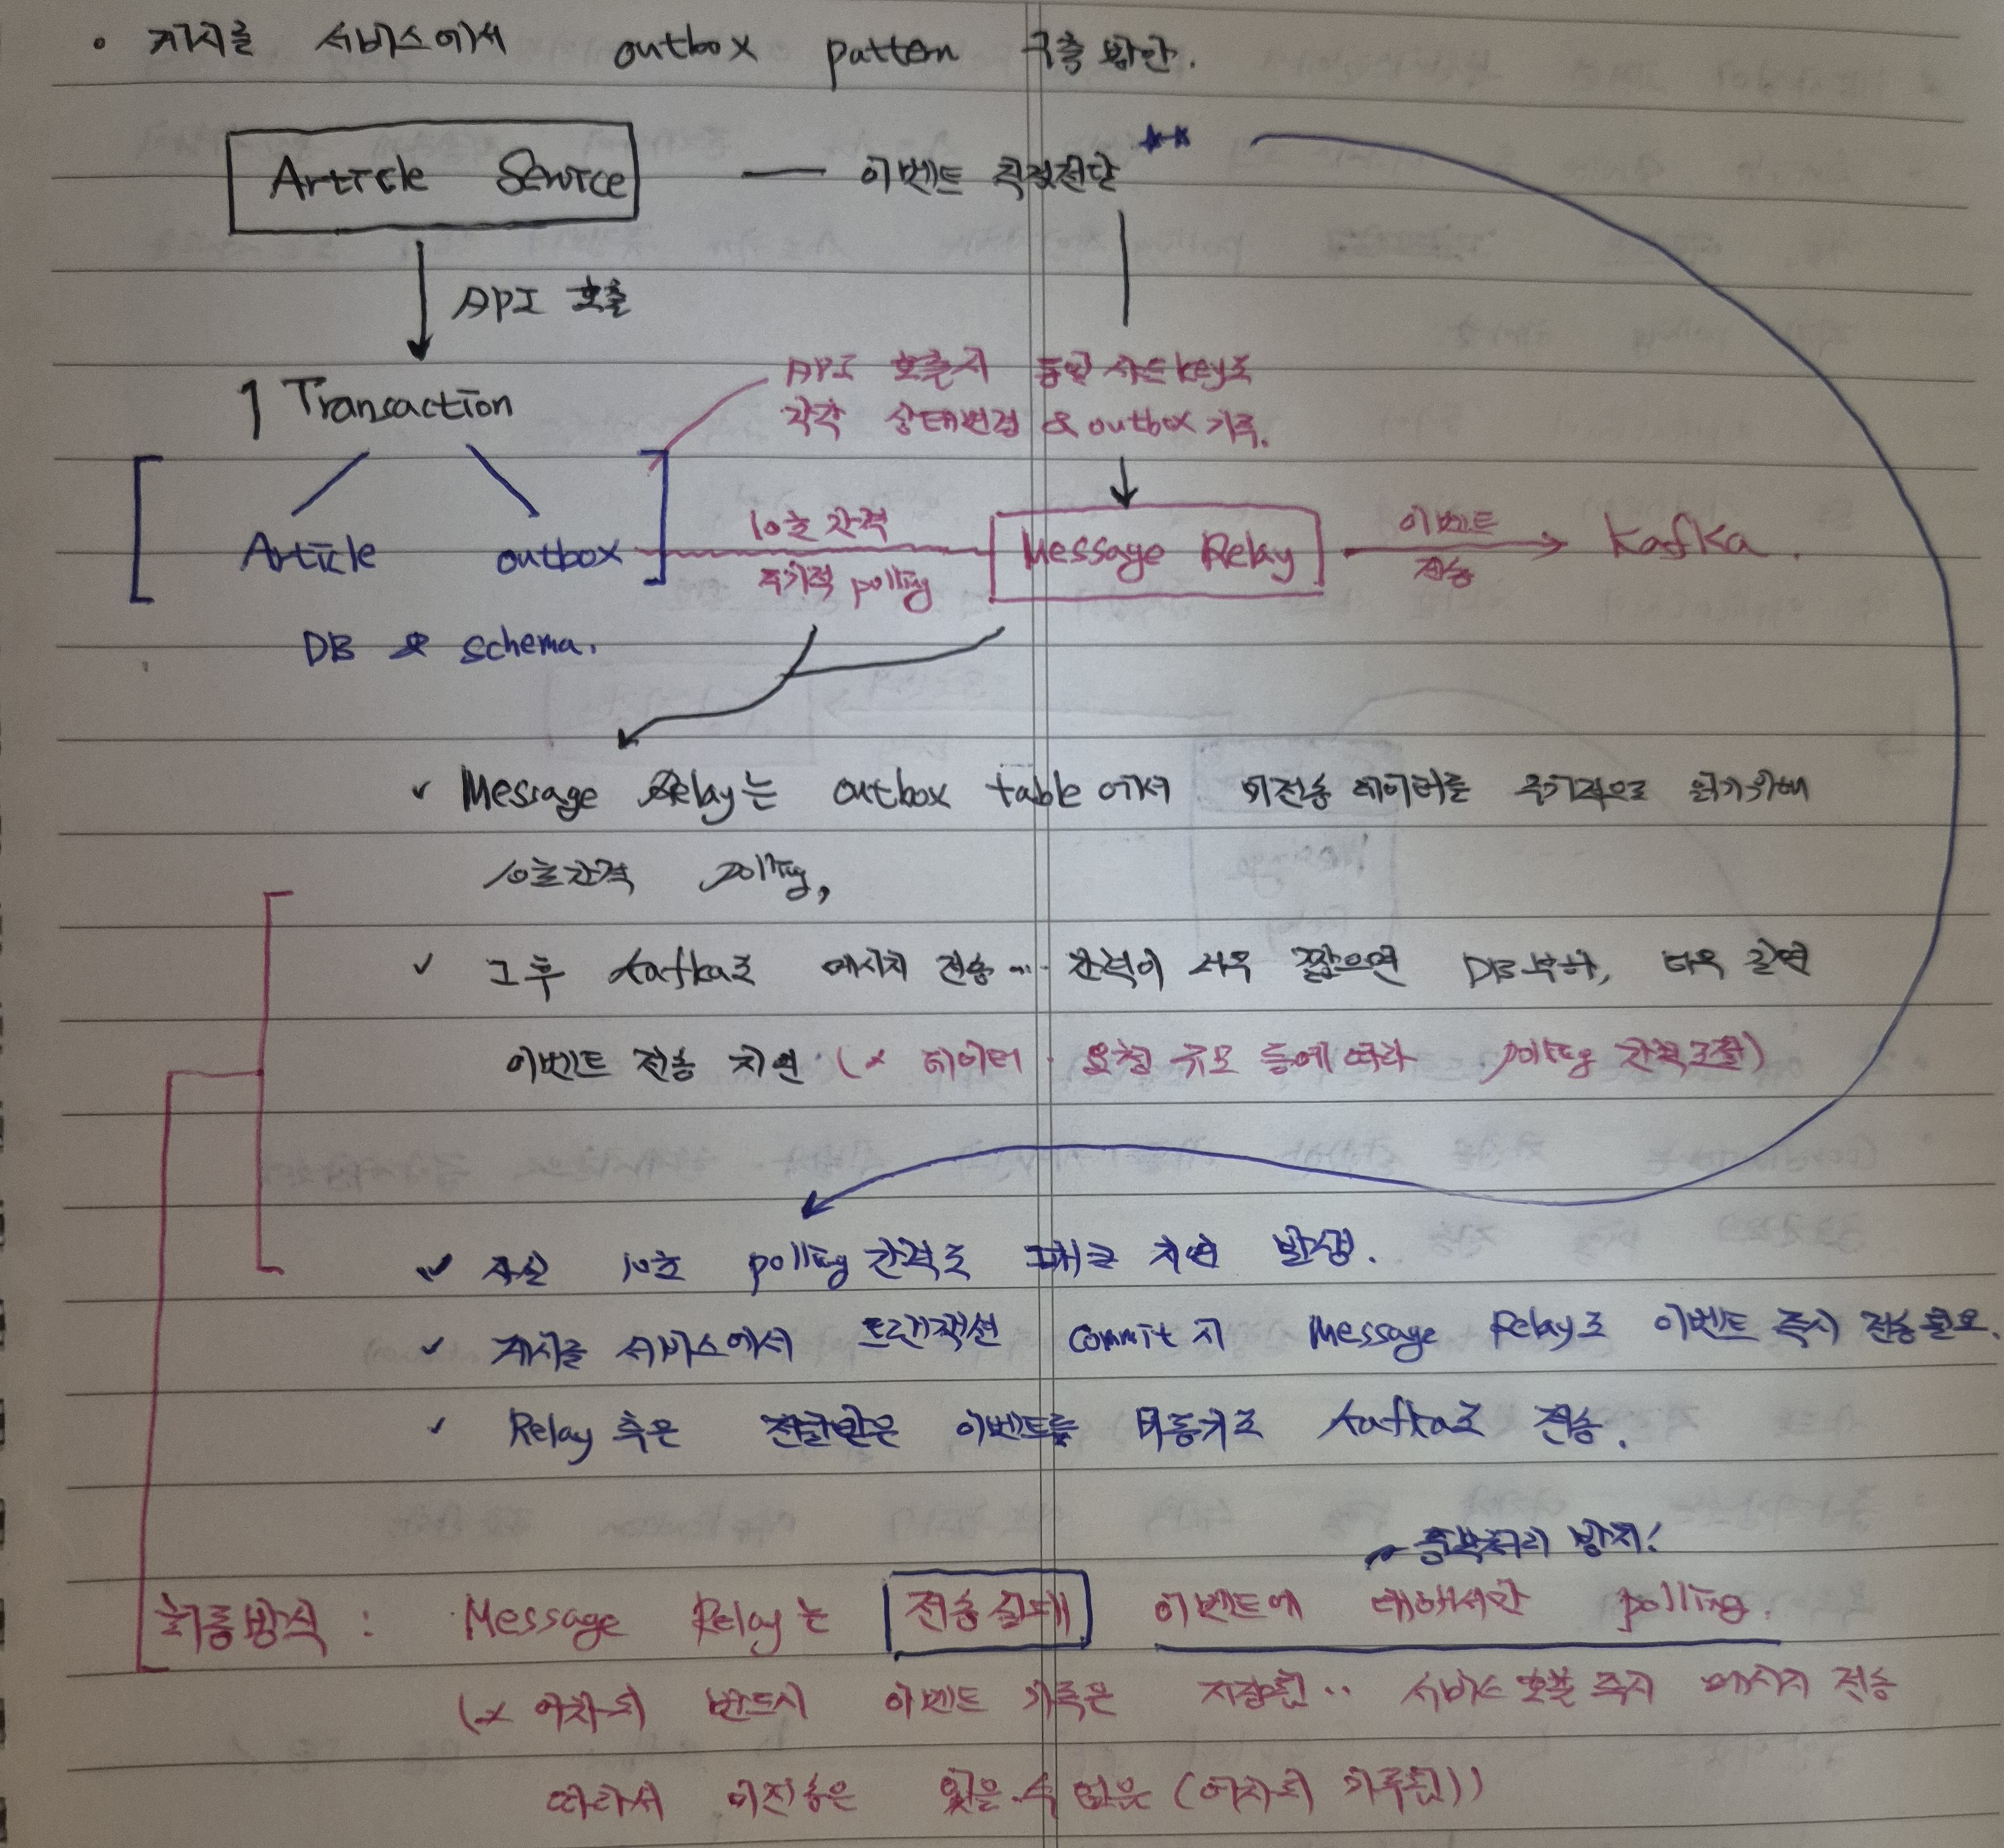 • 게시글 서비스에서 outbox pattern 구축 방안.
Article Service — 이벤트 직접전달 **
API 호출
1 Transaction
API 호출시 동일 샤드key로
각각 상태변경 & outbox 기록.
Article outbox
10초 간격
주기적 polling
Message Relay
이벤트
전송
Kafka.
DB & schema.
✓ Message Relay는 outbox table에서 미전송 데이터를 주기적으로 읽기위해
10초간격 polling,
✓ 그 후 kafka로 메시지 전송… 간격이 너무 짧으면 DB부하, 너무 길면
이벤트 전송 지연 (* 데이터 · 요청 규모 등에 따라 polling 간격조절)
✓ 사실 10초 polling 간격도 지연 발생.
✓ 게시글 서비스에서 트랜잭션 commit시 Message Relay로 이벤트 즉시 전송 필요.
✓ Relay 측은 전달받은 이벤트를 비동기로 kafka로 전송.
중복처리 방지!
최종방식 : Message Relay는 전송실패 이벤트에 대해서만 polling.
(* 어차피 반드시 이벤트 기록은 저장됨.. 서비스 호출 즉시 메시지 전송
따라서 미전송은 있을 수 없음 (어차피 기록됨))